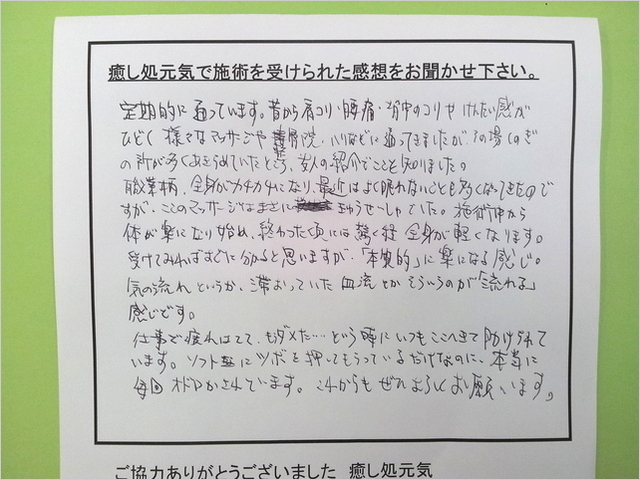 癒し処元気で施術を受けられた感想をお聞かせ下さい。
定期的に通っています。昔から肩コリ・腰痛・背中のコリやけんたい感が
ひどく様々なマッサージや整骨院、ハリなどに通ってきましたが、その場しのぎ
の所が多くあきらめていたところ、友人の紹介でここを知りました。
職業柄、全身がカチカチになり、最近はよく眠れないことも多くなってきたので
すが、ここのマッサージはまさにきゅうせいしゅでした。施術中から
体が楽になり始め、終わった頃には驚く程 全身が軽くなります。
受けてみればすぐに分かると思いますが、「本質的」に楽になる感じ。
気の流れというか、滞おっていた血流とかそういうのが「流れる」
感じです。
仕事で疲れはてて、もうダメだ…という時にいつもここへきて助けられて
います。ソフトにツボを押してもらっているだけなのに、本当に
毎回 おどろかされています。これからもぜひよろしくお願いします。
ご協力ありがとうございました 癒し処元気